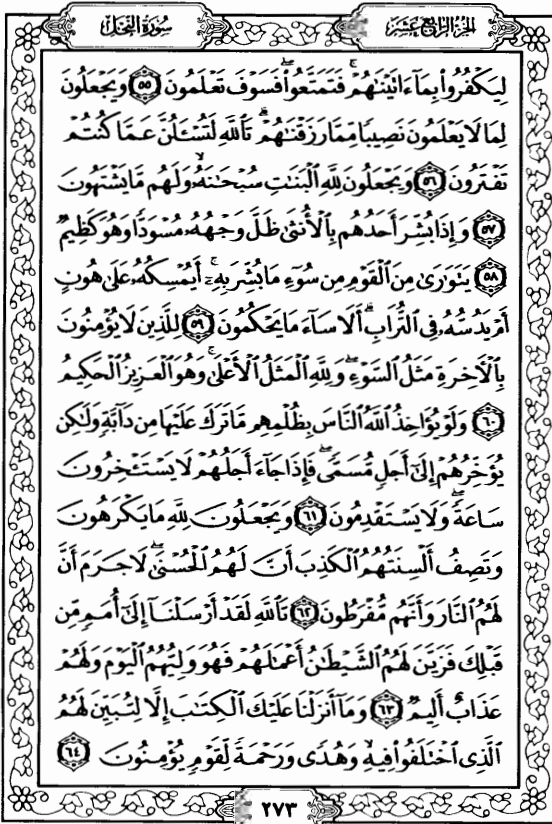 سُورَةُ النَّحْلِ
الجُزْءُ الرَّابِعَ عَشَرَ
لِيَكْفُرُواْ بِمَآ ءَاتَيْنَٰهُمْۚ فَتَمَتَّعُواْ فَسَوْفَ تَعْلَمُونَ ٥٥ وَيَجْعَلُونَ
لِمَا لَا يَعْلَمُونَ نَصِيبًا مِّمَّا رَزَقْنَٰهُمْۗ تَٱللَّهِ لَتُسْـَٔلُنَّ عَمَّا كُنتُمْ
تَفْتَرُونَ ٥٦ وَيَجْعَلُونَ لِلَّهِ ٱلْبَنَٰتِ سُبْحَٰنَهُۥ وَلَهُم مَّا يَشْتَهُونَ
٥٧ وَإِذَا بُشِّرَ أَحَدُهُم بِٱلْأُنثَىٰ ظَلَّ وَجْهُهُۥ مُسْوَدًّا وَهُوَ كَظِيمٌ
٥٨ يَتَوَٰرَىٰ مِنَ ٱلْقَوْمِ مِن سُوٓءِ مَا بُشِّرَ بِهِۦٓۚ أَيُمْسِكُهُۥ عَلَىٰ هُونٍ
أَمْ يَدُسُّهُۥ فِى ٱلتُّرَابِۗ أَلَا سَآءَ مَا يَحْكُمُونَ ٥٩ لِلَّذِينَ لَا يُؤْمِنُونَ
بِٱلْأَخِرَةِ مَثَلُ ٱلسَّوْءِۖ وَلِلَّهِ ٱلْمَثَلُ ٱلْأَعْلَىٰۚ وَهُوَ ٱلْعَزِيزُ ٱلْحَكِيمُ
٦٠ وَلَوْ يُؤَاخِذُ ٱللَّهُ ٱلنَّاسَ بِظُلْمِهِم مَّا تَرَكَ عَلَيْهَا مِن دَآبَّةٍ وَلَٰكِن
يُؤَخِّرُهُمْ إِلَىٰٓ أَجَلٍ مُّسَمًّىۖ فَإِذَا جَآءَ أَجَلُهُمْ لَا يَسْتَـْٔخِرُونَ
سَاعَةًۖ وَلَا يَسْتَقْدِمُونَ ٦١ وَيَجْعَلُونَ لِلَّهِ مَا يَكْرَهُونَ
وَتَصِفُ أَلْسِنَتُهُمُ ٱلْكَذِبَ أَنَّ لَهُمُ ٱلْحُسْنَىٰۖ لَا جَرَمَ أَنَّ
لَهُمُ ٱلنَّارَ وَأَنَّهُم مُّفْرَطُونَ ٦٢ تَٱللَّهِ لَقَدْ أَرْسَلْنَآ إِلَىٰٓ أُمَمٍ مِّن
قَبْلِكَ فَزَيَّنَ لَهُمُ ٱلشَّيْطَٰنُ أَعْمَٰلَهُمْ فَهُوَ وَلِيُّهُمُ ٱلْيَوْمَ وَلَهُمْ
عَذَابٌ أَلِيمٌ ٦٣ وَمَآ أَنزَلْنَا عَلَيْكَ ٱلْكِتَٰبَ إِلَّا لِتُبَيِّنَ لَهُمُ
ٱلَّذِى ٱخْتَلَفُواْ فِيهِۙ وَهُدًى وَرَحْمَةً لِّقَوْمٍ يُؤْمِنُونَ ٦٤
٢٧٣